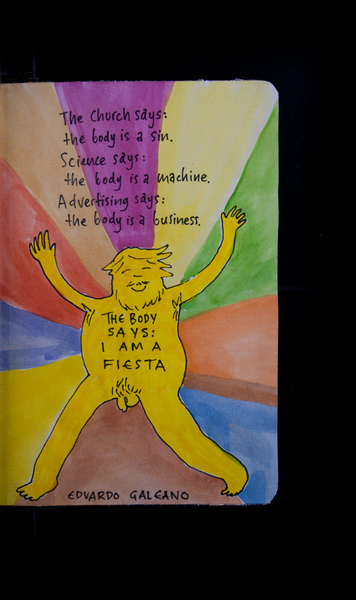 The Church says:
the body is a sin.
Science says:
the body is a machine.
Advertising says:
the body is a business.
THE BODY
SAYS:
I AM A
FIESTA
EDUARDO GALEANO